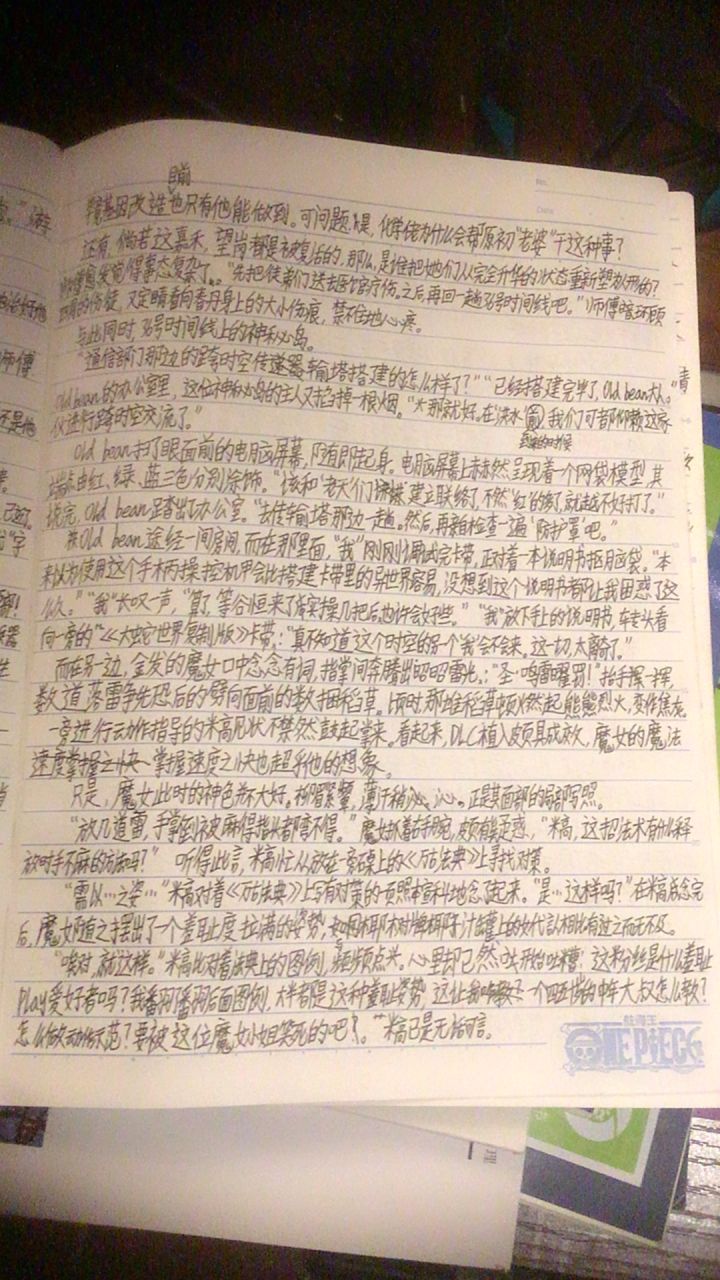 目前
基因改造也只有他能做到。可问题是,化学佬为什么会帮原初“老婆”干这种事?
还有,倘若这嘉禾,望岗都是被复活的,那么,是谁把她们从完全升华的状态重新塑为人形的?
发觉得事态复杂了。“先把徒弟们送去医官疗伤。之后再回一趟36号时间线吧。”师傅暗环顾
的伤徒,又定睛看向香丹身上的大小伤痕,禁不住地心疼。
与此同时,36号时间线上的神秘岛。
“通信部门那边的跨时空传输塔搭建的怎么样了?”“已经搭建完毕了,Old bean大人。”
Old bean的办公室里,这位神秘岛的主人又掐掉一根烟。“那就好。在洪水 我们可都仰赖这家
伙进行跨时空交流了。”
来的时候
Old bean扫了眼面前的电脑屏幕,随即起身。电脑屏幕上赫然呈现着一个网袋模型,其
端点由红、绿、蓝三色分别涂饰。“该和老天们 建立联络了,不然‘红的’烧了,就越不好打了。”
说完,Old bean踏出了办公室。“去传输塔那边一趟。然后,再重新检查一遍‘防护罩’吧。”
Old bean途经一间房间,而在那里面,“我”刚刚调试完卡带,正对着一本说明书抠脑袋。“本
来以为使用这个手柄操控机甲会比搭建卡带里的异世界容易,没想到这个说明书都让我困惑了这
么久。”“我”长叹一声,“算了,等谷恒来了后实操几把后也许会好些。”“我”放下手上的说明书,转头看
向一旁的“《大蛇世界复制版》卡带。:“真不知道这个时空的另一个‘我’会不会来。这一切,太 了。”
而在另一边,金发的魔女口中念念有词,指掌间奔腾出昭昭雷光。:“圣·鸣雷曜罚!”抬手挥一挥,
数道落雷争先恐后的劈向面前的数捆稻草。顷时,那堆稻草顿燃起熊熊烈火,变作焦炭。
一旁进行动作指导的米高见状不禁鼓起掌来。看起来,DLC植入颇具成效,魔女的魔法
速度掌握之快 掌握速度之快也超乎他的想象。
只是,魔女此时的神色并不大好。柳眉紧蹙,薄汗稍沁。正是其面部的局部写照。
“放几道雷,手掌倒被麻得指头都弯不得。”魔女抓着手腕,颇有疑惑,“米高,这招法术有什么释
放时手不麻的方法吗?” 听得此言,米高忙从放在一旁桌上的《万古法典》上寻找对策。
“需以…之姿…”米高对着《万古法典》上写有对策的页照本宣科地念了起来。“是…这样吗?”在米高念完
后,魔女随之摆出了一个羞耻度拉满的姿势, 椰树牌椰子汁罐上的女代言相比有过之而无不及。
“唉对,就这样。”米高比对着法典上的图例,频频点头。心里却已然开始吐槽:这 是什么羞耻
play爱好者吗?我翻阅翻阅后面图例,大半都是这种羞耻姿势,这让我 一个四五十的中年大叔怎么教?
怎么做动作示范?要被这位魔女小姐笑死的吧?。”米高已是无话可言。
航海王
ONE PIECE